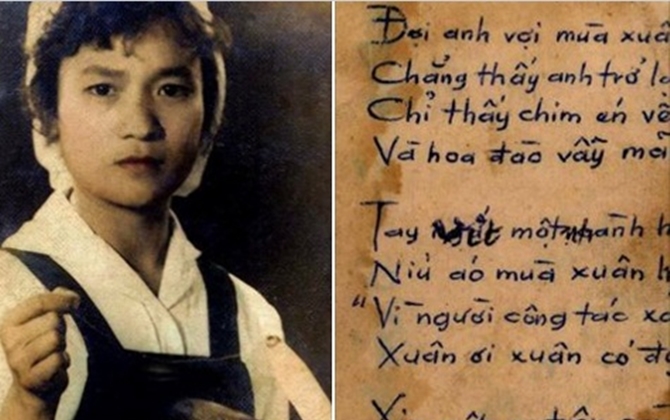 Đợi anh vợi mùa xuâ
Chẳng thấy anh trở lạ
Chỉ thấy chim én về
Và hoa đào vẫy mà
Tay một nhành h
Níu áo mùa xuân h
"Vì người công tác xa
Xuân ơi xuân có đ